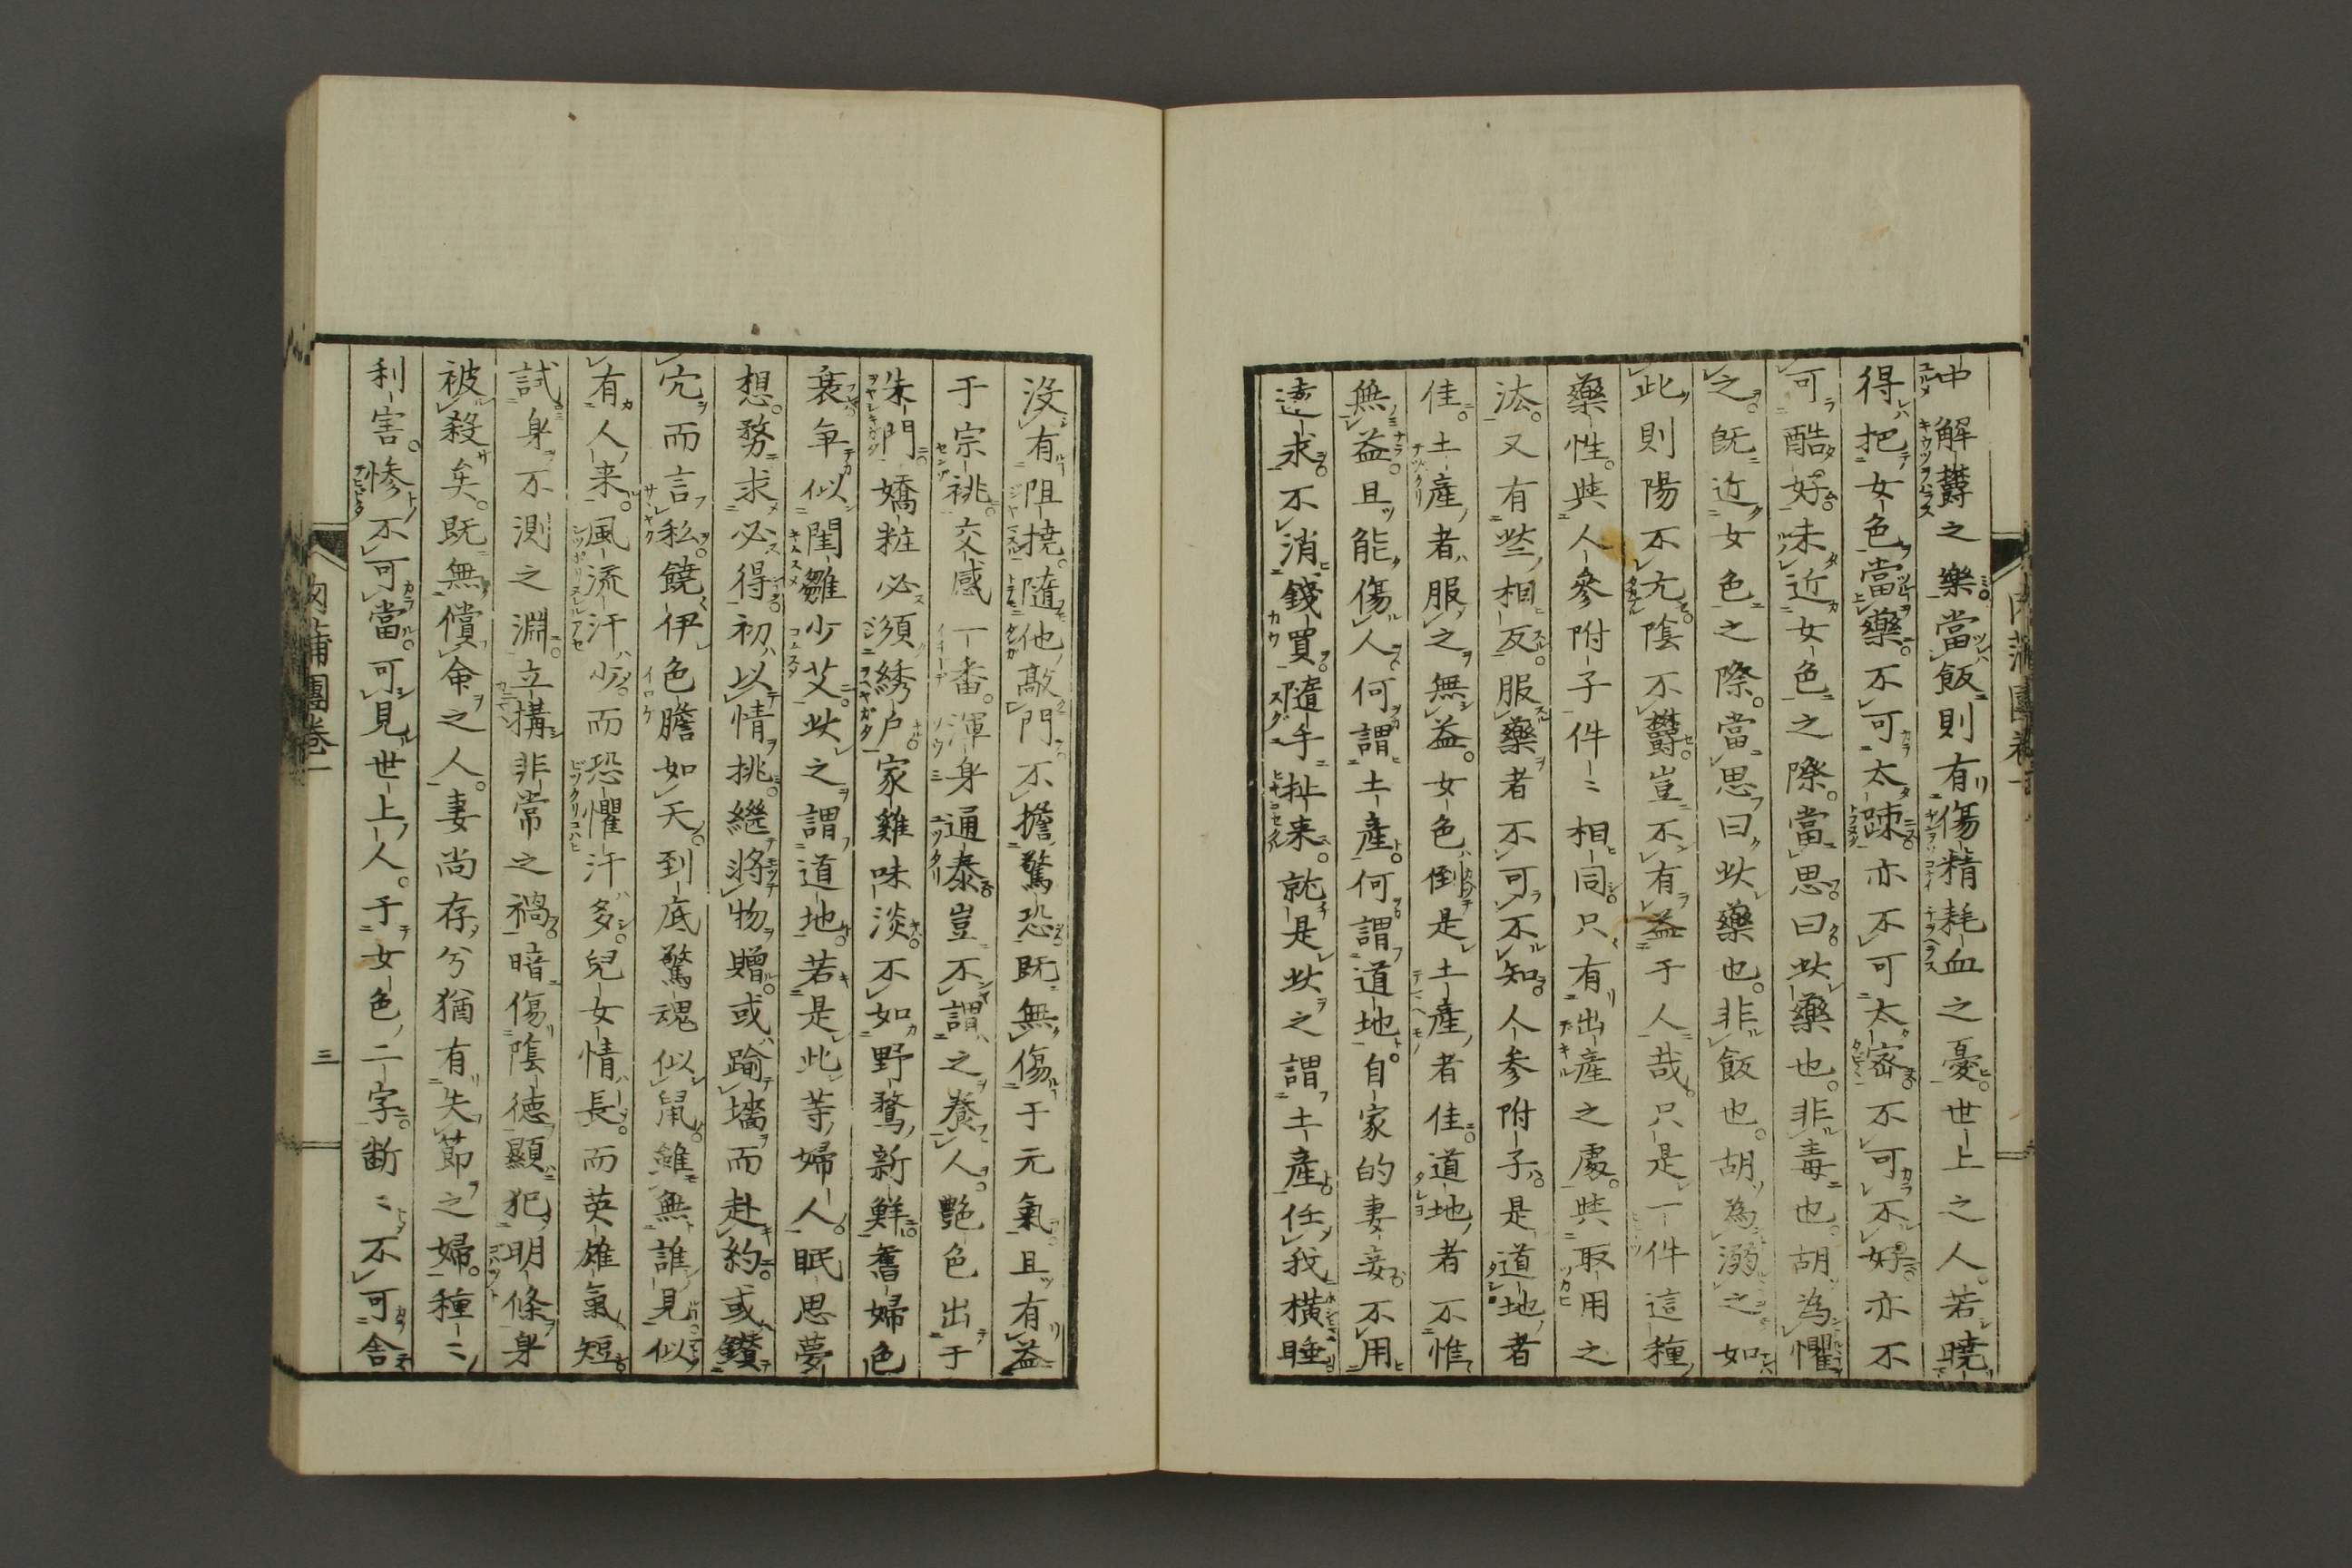 中解欝之樂當飯則有傷精耗血之憂世上之人若曉
得把女色當藥不可太踈亦不可太密不可不好亦不
可酷好未近女色之際當思曰此藥也非毒也胡為懼
之既近女色之際當思曰此藥也非飯也胡為溺之如
此則陽不亢陰不欝豈不有益于人哉只是一件這種
藥性與人參附子件〻相同只有出産之處與取用之
法又有些相反服藥者不可不知人参附子是道地者
佳土産者服之無益女色倒是土産者佳道地者不惟
無益且能傷人何謂土産何謂道地自家的妻妾不用
遠求不消錢買隨手扯来就是此之謂土産任我横睡
没有阻撓隨他敲門不擔驚恐既無傷于元氣且有益
于宗祧交感一番渾身通泰豈不謂之養人艷色出于
朱門嬌粧必須綉户家雞味淡不如野鶩新鮮舊婦色
衰争似閨雛少艾此之謂道地若是此等婦人眠思夢
想務求必得初以情挑繼將物贈或踰墻而赴約或鑽
穴而言私饒伊色膽如天到底驚魂似鼠雖無誰見似
有人来風流汗少而恐懼汗多兒女情長而英雄氣短
試身不測之淵立搆非常之禍暗傷陰徳顯犯明條身
被殺矣既無償命之人妻尚存兮猶有失節之婦種〻
利害慘不可當可見世上人于女色二字断〻不可舍
肉蒲團卷一
三